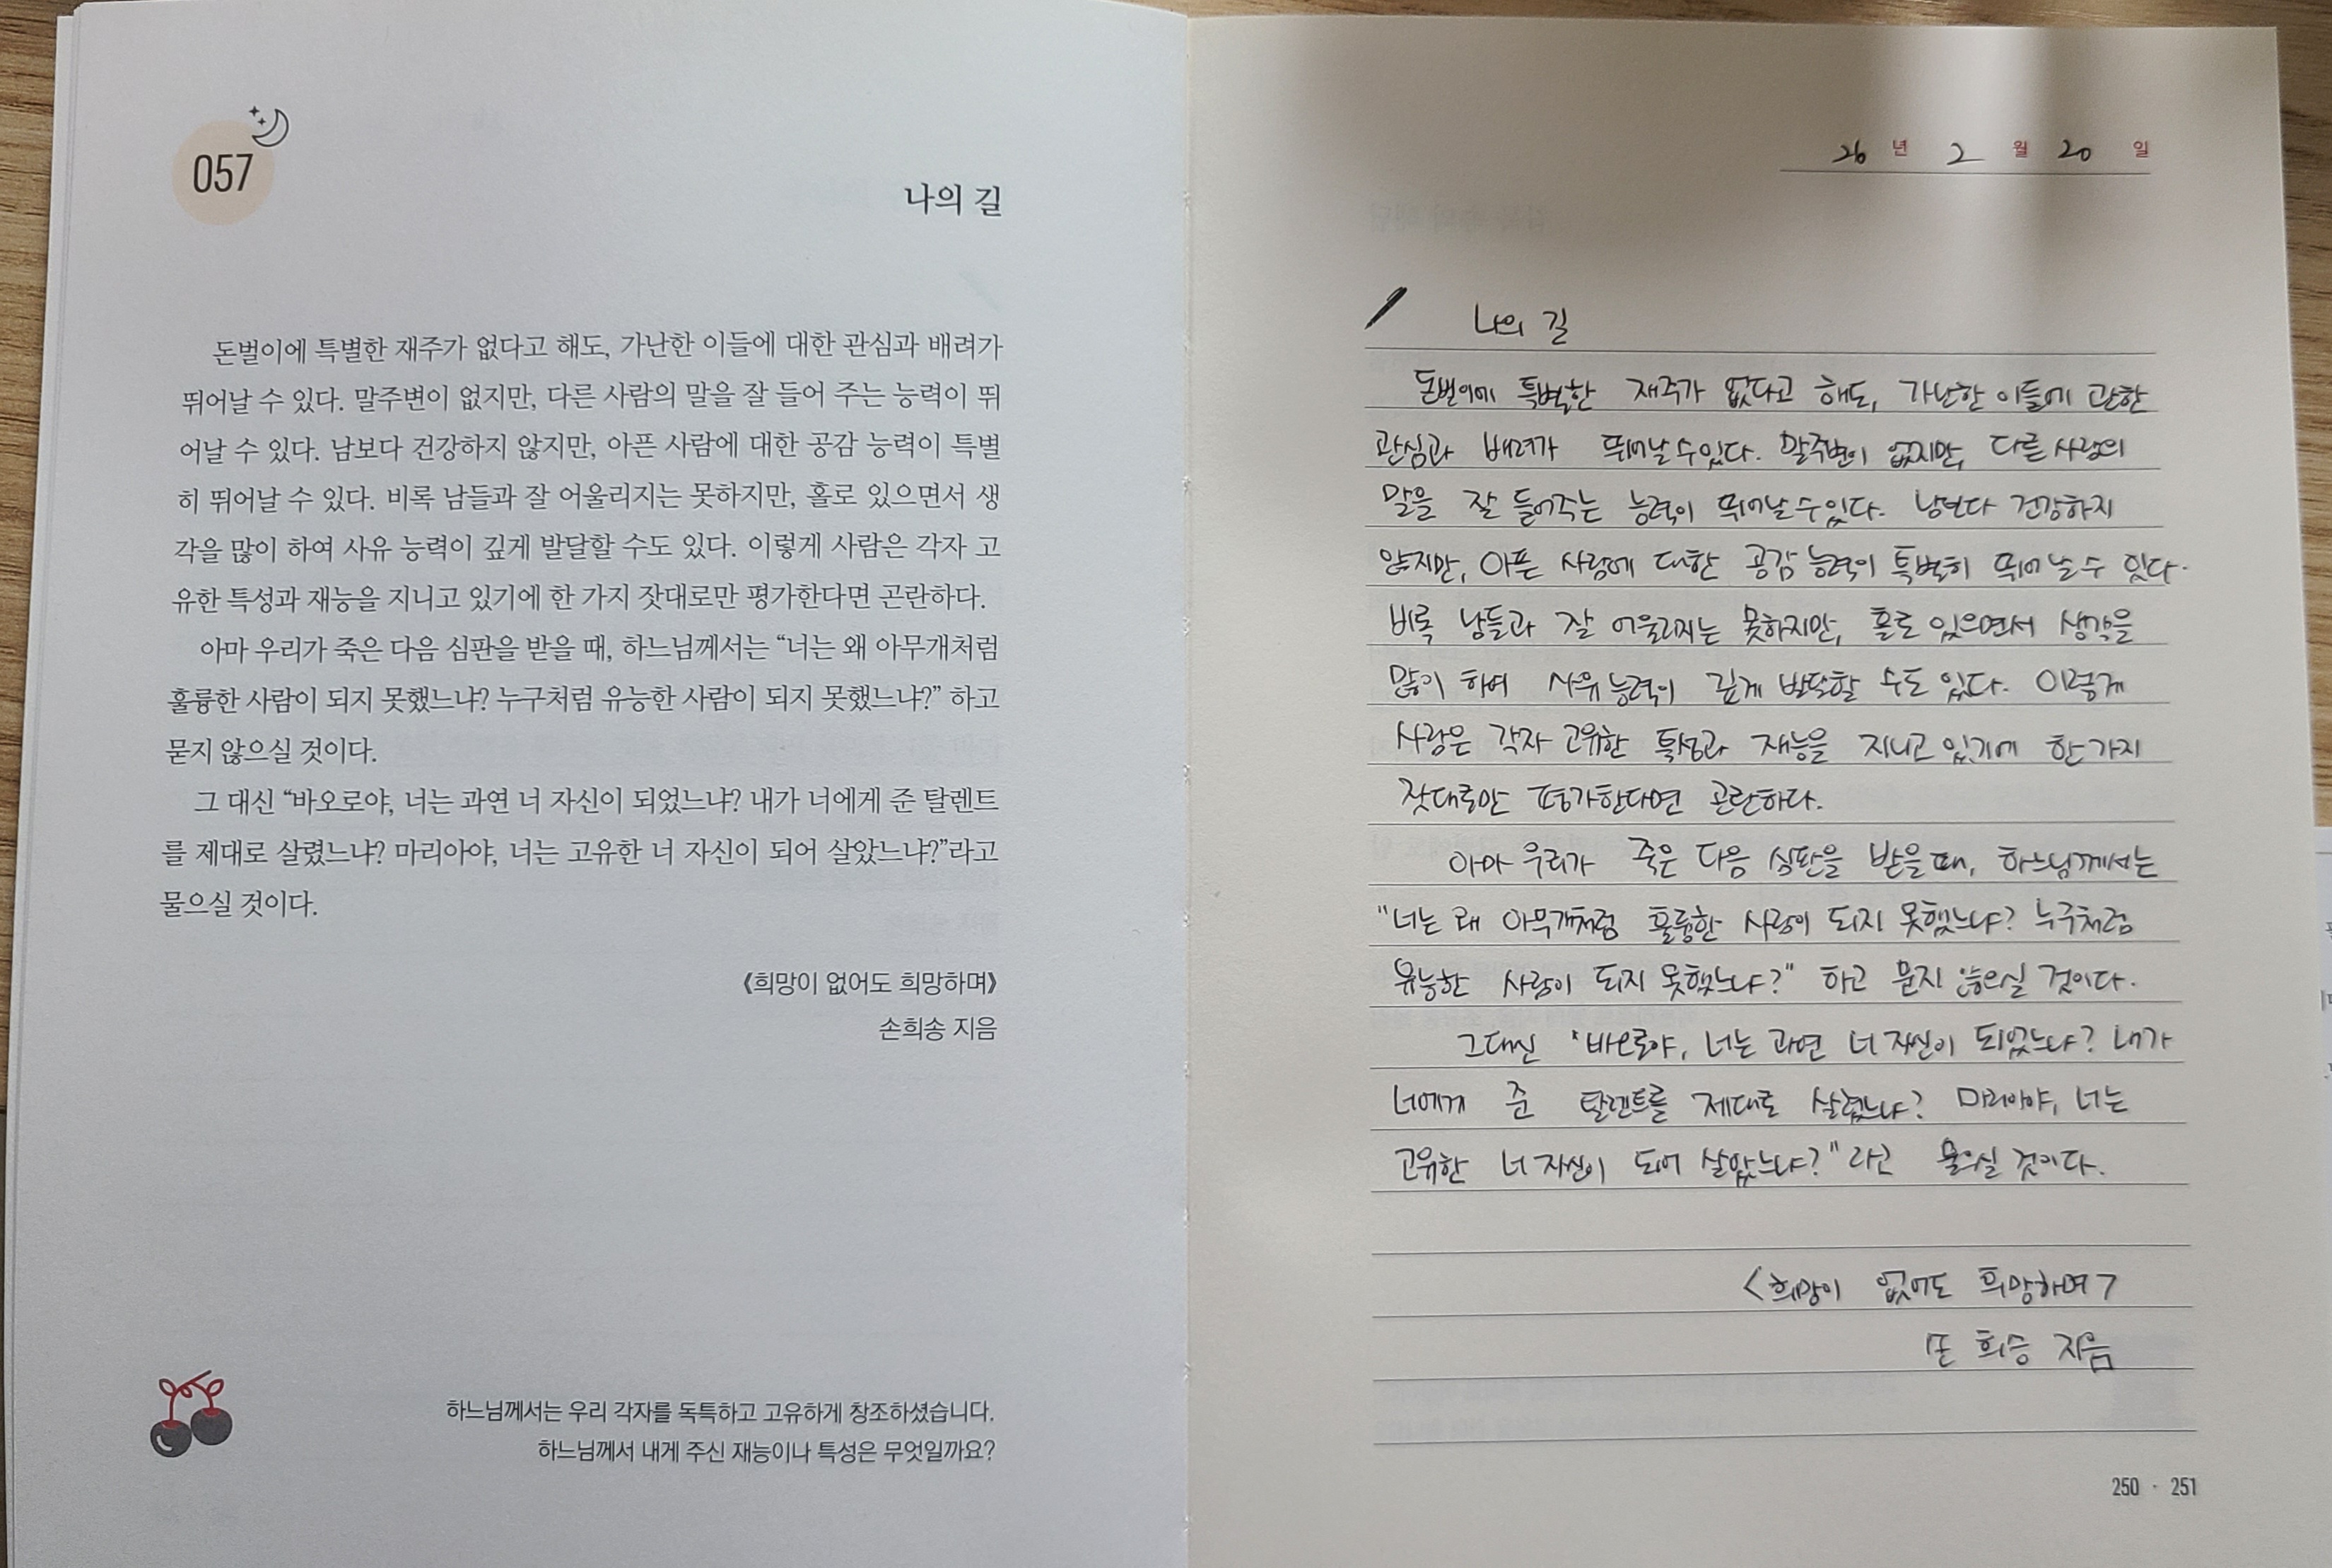 057
나의 길
돈벌이에 특별한 재주가 없다고 해도, 가난한 이들에 대한 관심과 배려가
뛰어날 수 있다. 말주변이 없지만, 다른 사람의 말을 잘 들어 주는 능력이 뛰
어날 수 있다. 남보다 건강하지 않지만, 아픈 사람에 대한 공감 능력이 특별
히 뛰어날 수 있다. 비록 남들과 잘 어울리지는 못하지만, 홀로 있으면서 생
각을 많이 하여 사유 능력이 깊게 발달할 수도 있다. 이렇게 사람은 각자 고
유한 특성과 재능을 지니고 있기에 한 가지 잣대로만 평가한다면 곤란하다.
아마 우리가 죽은 다음 심판을 받을 때, 하느님께서는 “너는 왜 아무개처럼
훌륭한 사람이 되지 못했느냐? 누구처럼 유능한 사람이 되지 못했느냐?” 하고
묻지 않으실 것이다.
그 대신 “바오로야, 너는 과연 너 자신이 되었느냐? 내가 너에게 준 탈렌트
를 제대로 살렸느냐? 마리아야, 너는 고유한 너 자신이 되어 살았느냐?”라고
물으실 것이다.
《희망이 없어도 희망하며》
손희송 지음
하느님께서는 우리 각자를 독특하고 고유하게 창조하셨습니다.
하느님께서 내게 주신 재능이나 특성은 무엇일까요?
26 년 2 월 20 일
나의 길
돈벌이에 특별한 재주가 없다고 해도, 가난한 이들에 관한
관심과 배려가 뛰어날 수 있다. 말주변이 없지만, 다른 사람의
말을 잘 들어주는 능력이 뛰어날 수 있다. 남보다 건강하지
않지만, 아픈 사람에 대한 공감 능력이 특별히 뛰어날 수 있다.
비록 남들과 잘 어울리지는 못하지만, 홀로 있으면서 생각을
많이 하여 사유 능력이 깊게 발달할 수도 있다. 이렇게
사람은 각자 고유한 특성과 재능을 지니고 있기에 한 가지
잣대로만 평가한다면 곤란하다.
아마 우리가 죽은 다음 심판을 받을 때, 하느님께서는
"너는 왜 아무개처럼 훌륭한 사람이 되지 못했느냐? 누구처럼
유능한 사람이 되지 못했느냐?" 하고 묻지 않으실 것이다.
그대신 "바오로야, 너는 과연 너 자신이 되었느냐? 내가
너에게 준 탈렌트를 제대로 살렸느냐? 마리아야, 너는
고유한 너 자신이 되어 살았느냐?"라고 물으실 것이다.
<희망이 없어도 희망하며>
손 희송 지음
250 · 251